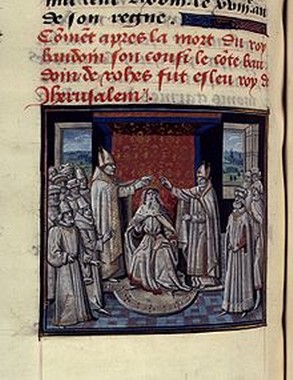 de son regne.
Cõmẽt apres la mort du roy
baudoin son cousi le cõte bau
doin de rohes fut esleu roy de
Jherusalem.